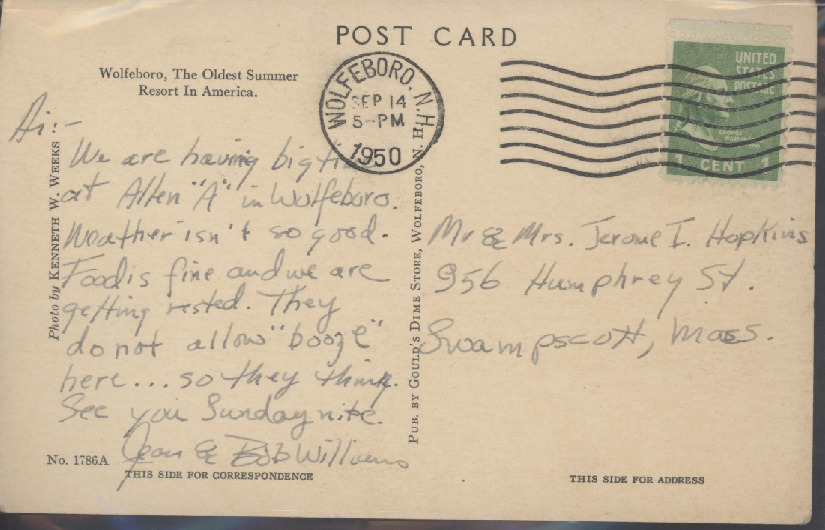 POST CARD
Wolfeboro, The Oldest Summer
Resort In America.
WOLFEBORO, N.H.
SEP 14
5-PM
1950
UNITED
STATES
POSTAGE
GEORGE
WASHINGTON
1 CENT 1
Hi:-
We are having big
at Allen "A" in Wolfeboro.
Weather isn't so good.
Food is fine and we are
getting rested. They
do not allow "booze"
here... so they think.
See you Sunday nite.
Jean & Bob Williams
Mr & Mrs. Jerome I. Hopkins
956 Humphrey St.
Swampscott, Mass.
Photo by KENNETH W. WEEKS
PUB. BY GOULD'S DIME STORE, WOLFEBORO, N. H.
No. 1786A
THIS SIDE FOR CORRESPONDENCE
THIS SIDE FOR ADDRESS